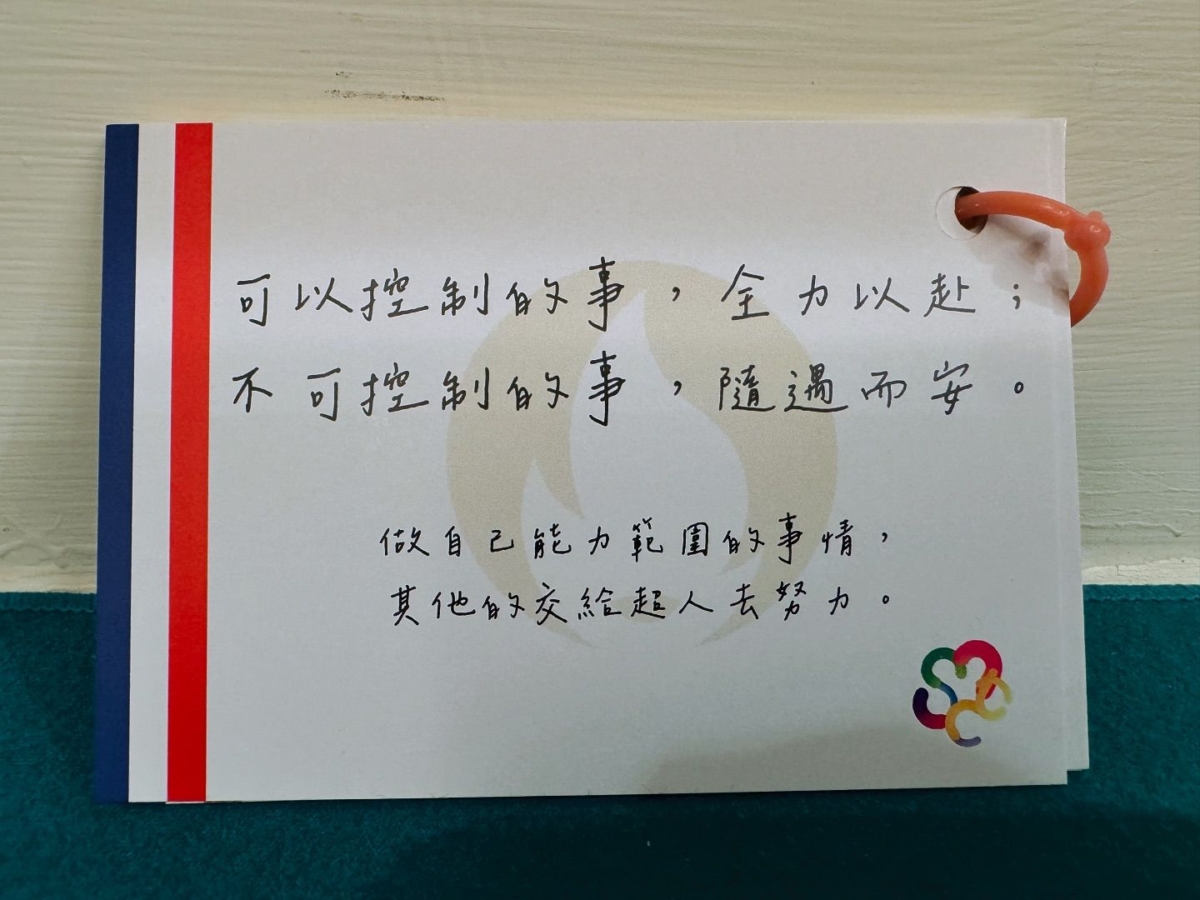 可以控制的事，全力以赴；
不可控制的事，隨遇而安。
做自己能力範圍的事情，
其他的交給超人去努力。